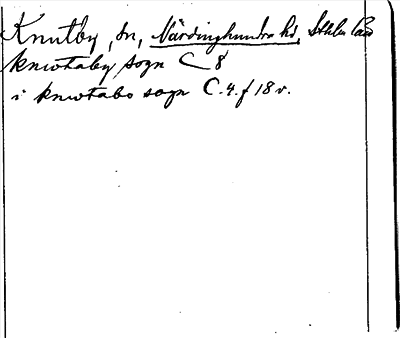 Knutby, sn, Närdinghundra hd, Sthlms län
knwtaby sogn C 8
i knwtabo sogn C.4. f 18 v.